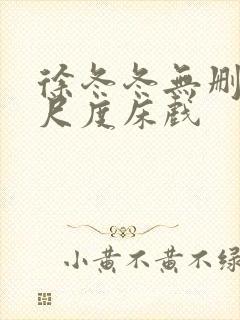 徐冬冬無删
尺度床戲
小黄不黄不绿